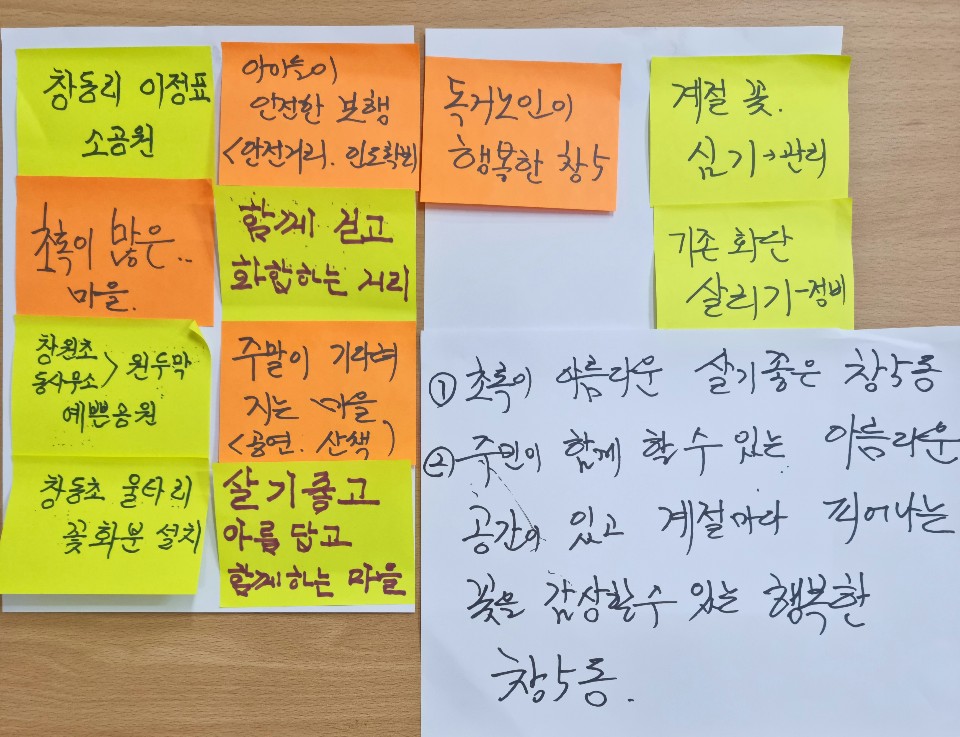 창동리 이정표
소공원
아이들이
안전한 보행
<안전거리. 인도확보)
초록이 많은..
마을.
함께 걷고
화합하는 거리
창원초
동사무소 > 원두막
예쁜공원
주말이 기다려
지는 마을
<공연. 산책)
창동초 울타리
꽃화분 설치
살기좋고
아름답고
함께하는 마을
독거노인이
행복한 창5
계절 꽃.
심기→관리
기존 화단
살리기-정비
① 초록이 아름다운 살기좋은 창5동
② 주민이 함께 할 수 있는 아름다운
공간이 있고 계절마다 피어나는
꽃을 감상할수 있는 행복한
창5동.